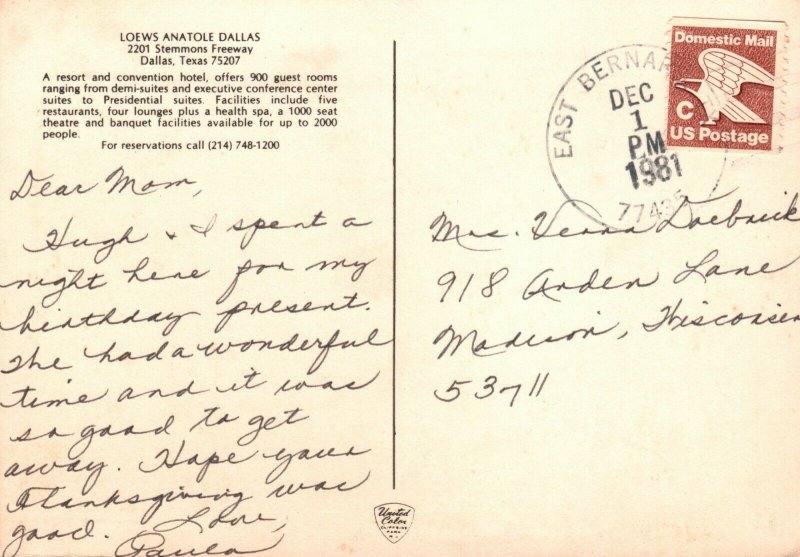 LOEWS ANATOLE DALLAS
2201 Stemmons Freeway
Dallas, Texas 75207
A resort and convention hotel, offers 900 guest rooms
ranging from demi-suites and executive conference center
suites to Presidential suites. Facilities include five
restaurants, four lounges plus a health spa, a 1000 seat
theatre and banquet facilities available for up to 2000
people.
For reservations call (214) 748-1200
Dear Mom,
Hugh & I spent a
night here for my
birthday present.
The had a wonderful
time and it was
so good to get
away. Hope your
Thanksgiving was
good. Love,
Paula
Domestic Mail
C
US Postage
EAST BERNAR
DEC
1
PM
1981
7743
Mrs. Verna
918 Arden Lane
Madison, Wisconsin
53711
United
Color